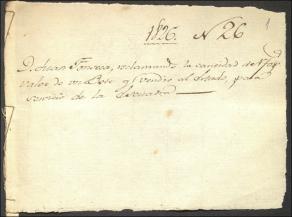 1826. N 26
D. Juan Fonseca, reclamando la cantidad de
valor de un Bote q vendió al Estado, para
servicio de la Escuadra